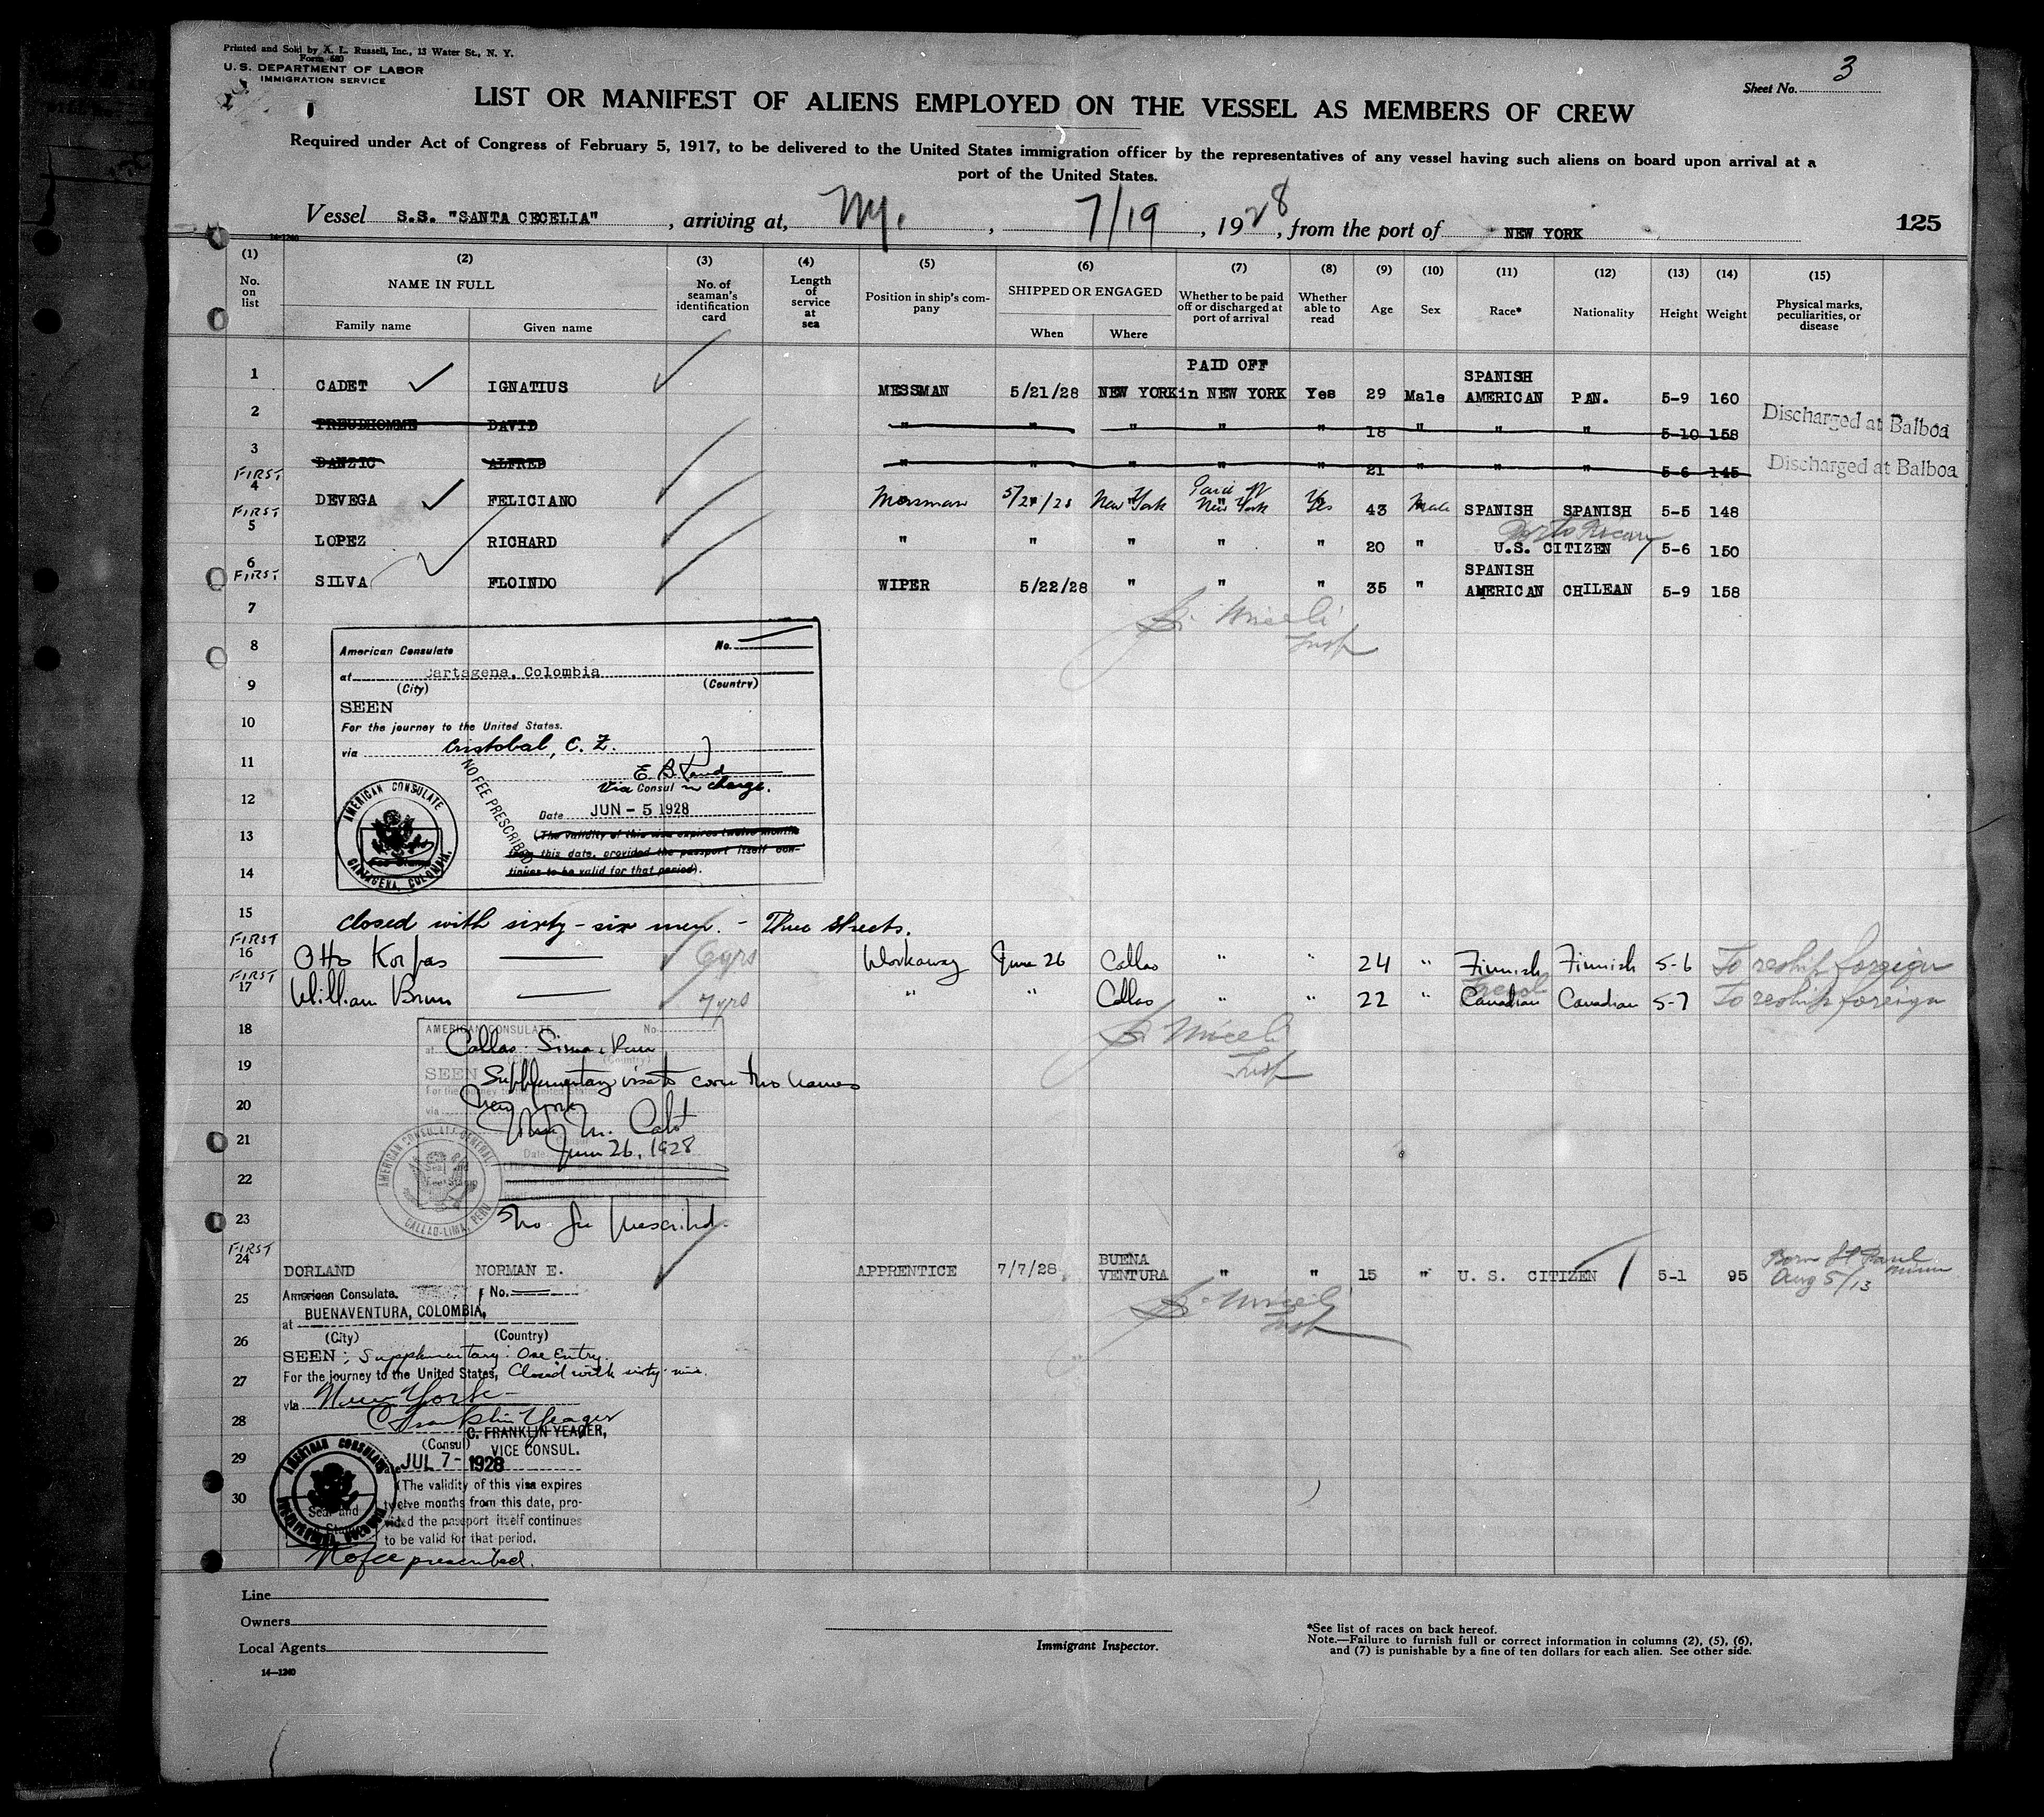 Printed and Sold by A. L. Russell, Inc., 13 Water St., N. Y.
Form 680
U. S. DEPARTMENT OF LABOR
IMMIGRATION SERVICE
Sheet No. 3
LIST OR MANIFEST OF ALIENS EMPLOYED ON THE VESSEL AS MEMBERS OF CREW
Required under Act of Congress of February 5, 1917, to be delivered to the United States immigration officer by the representatives of any vessel having such aliens on board upon arrival at a
port of the United States.
Vessel S.S. "SANTA CECELIA", arriving at, N.Y., 7/19, 1928, from the port of NEW YORK 125
14-1240
(1) No. on list
(2) NAME IN FULL Family name Given name
(3) No. of seaman's identification card
(4) Length of service at sea
(5) Position in ship's company
(6) SHIPPED OR ENGAGED When Where
(7) Whether to be paid off or discharged at port of arrival
(8) Whether able to read
(9) Age
(10) Sex
(11) Race*
(12) Nationality
(13) Height
(14) Weight
(15) Physical marks, peculiarities, or disease
1 CADET IGNATIUS MESSMAN 5/21/28 NEW YORK PAID OFF in NEW YORK Yes 29 Male SPANISH AMERICAN PAN. 5-9 160
2 PREUDHOMME DAVID " " " " " 18 " " " 5-10 158 Discharged at Balboa
3 DANZIC ALFRED " " " " " 21 " " " 5-6 145 Discharged at Balboa
FIRST
4 DEVEGA FELICIANO Messman 5/21/28 New York Paid off New York Yes 43 Male SPANISH SPANISH 5-5 148
FIRST
5 LOPEZ RICHARD " " " " " 20 " U.S. CITIZEN Porto Rican 5-6 150
6 FIRST SILVA FLOINDO WIPER 5/22/28 " " " 35 " SPANISH AMERICAN CHILEAN 5-9 158
7
Miceli
Insp
8
American Consulate No.
at Cartagena, Colombia
9
(City) (Country)
SEEN
10
For the journey to the United States.
via Cristobal, C. Z.
11
NO FEE PRESCRIBED
E. B.
Vice Consul in charge.
12
Date JUN - 5 1928
13
(The validity of this visa expires twelve months
from this date, provided the passport itself con-
14
tinues to be valid for that period).
AMERICAN CONSULATE
CARTAGENA, COLOMBIA.
15 Closed with sixty-six men. - Three sheets.
FIRST
16 Otto Korpas 6yrs Workaway June 26 Callao " " 24 " Finnish Finnish 5-6 To reship foreign
FIRST
17 William Brun 7yrs " " Callao " " 22 " French Canadian Canadian 5-7 To reship foreign
18
AMERICAN CONSULATE No.
Callao-Lima, Peru
Miceli
Insp
19
SEEN
Supplementary visa to cover two names
20
New York
21
June 26, 1928
22
AMERICAN CONSULATE GENERAL
CALLAO-LIMA, PERU
23
No fee prescribed.
FIRST
24 DORLAND NORMAN E. APPRENTICE 7/7/28 BUENA VENTURA " " 15 " U. S. CITIZEN 5-1 95 Born St Paul Minn Aug 5/13
25
American Consulate. No.
at BUENAVENTURA, COLOMBIA,
Miceli
Insp
26
(City) (Country)
SEEN: Supplementary: One Entry.
27
For the journey to the United States, Closed with sixty-nine.
via New York
28
C Franklin Yeager
C. FRANKLIN YEAGER,
(Consul) VICE CONSUL.
29
JUL 7 - 1928
(The validity of this visa expires
30
twelve months from this date, pro-
vided the passport itself continues
to be valid for that period.
No fee prescribed.
Line
Owners
Local Agents
14-1240
Immigrant Inspector.
*See list of races on back hereof.
Note.—Failure to furnish full or correct information in columns (2), (5), (6),
and (7) is punishable by a fine of ten dollars for each alien. See other side.